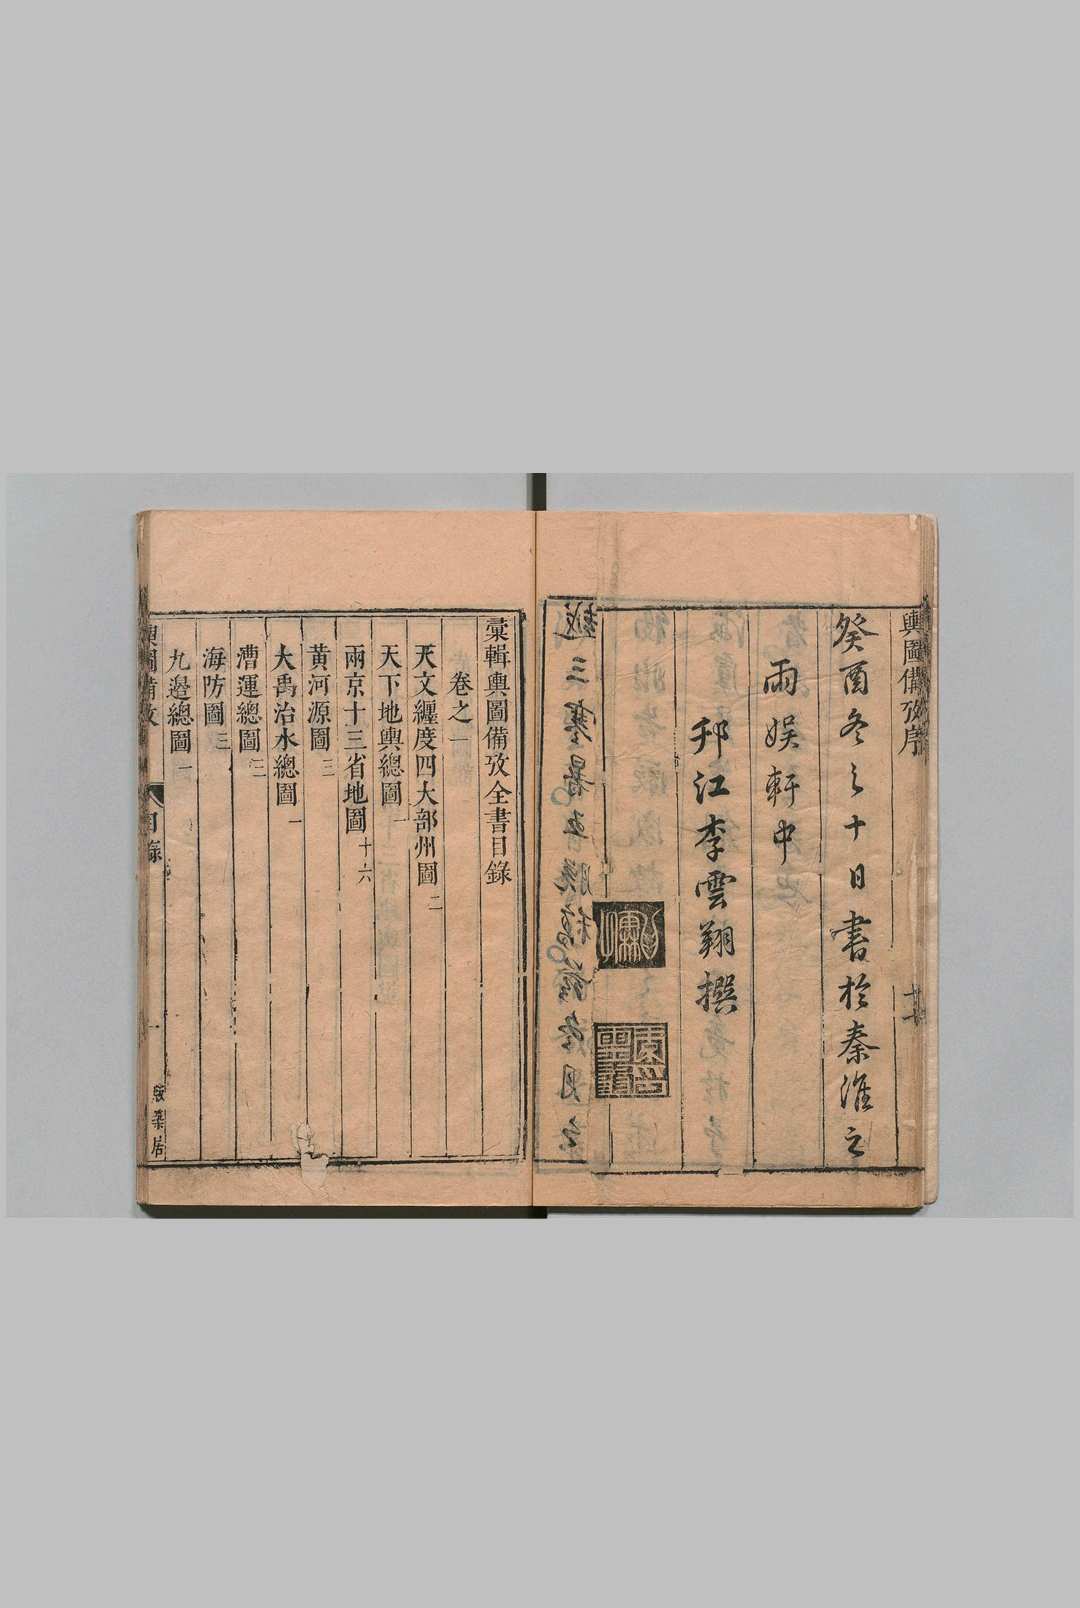 輿圖備攷序
癸酉冬之十日書於秦淮之
雨娛軒中
邗江李雲翔撰
彙輯輿圖備攷全書目錄
卷之一
天文纏度四大部州圖 二
天下地輿總圖 一
兩京十三省地圖 十六
黃河源圖 三
大禹治水總圖 一
漕運總圖 二
海防圖 三
九邊總圖 一
輿圖備攷 目錄 一 版築居